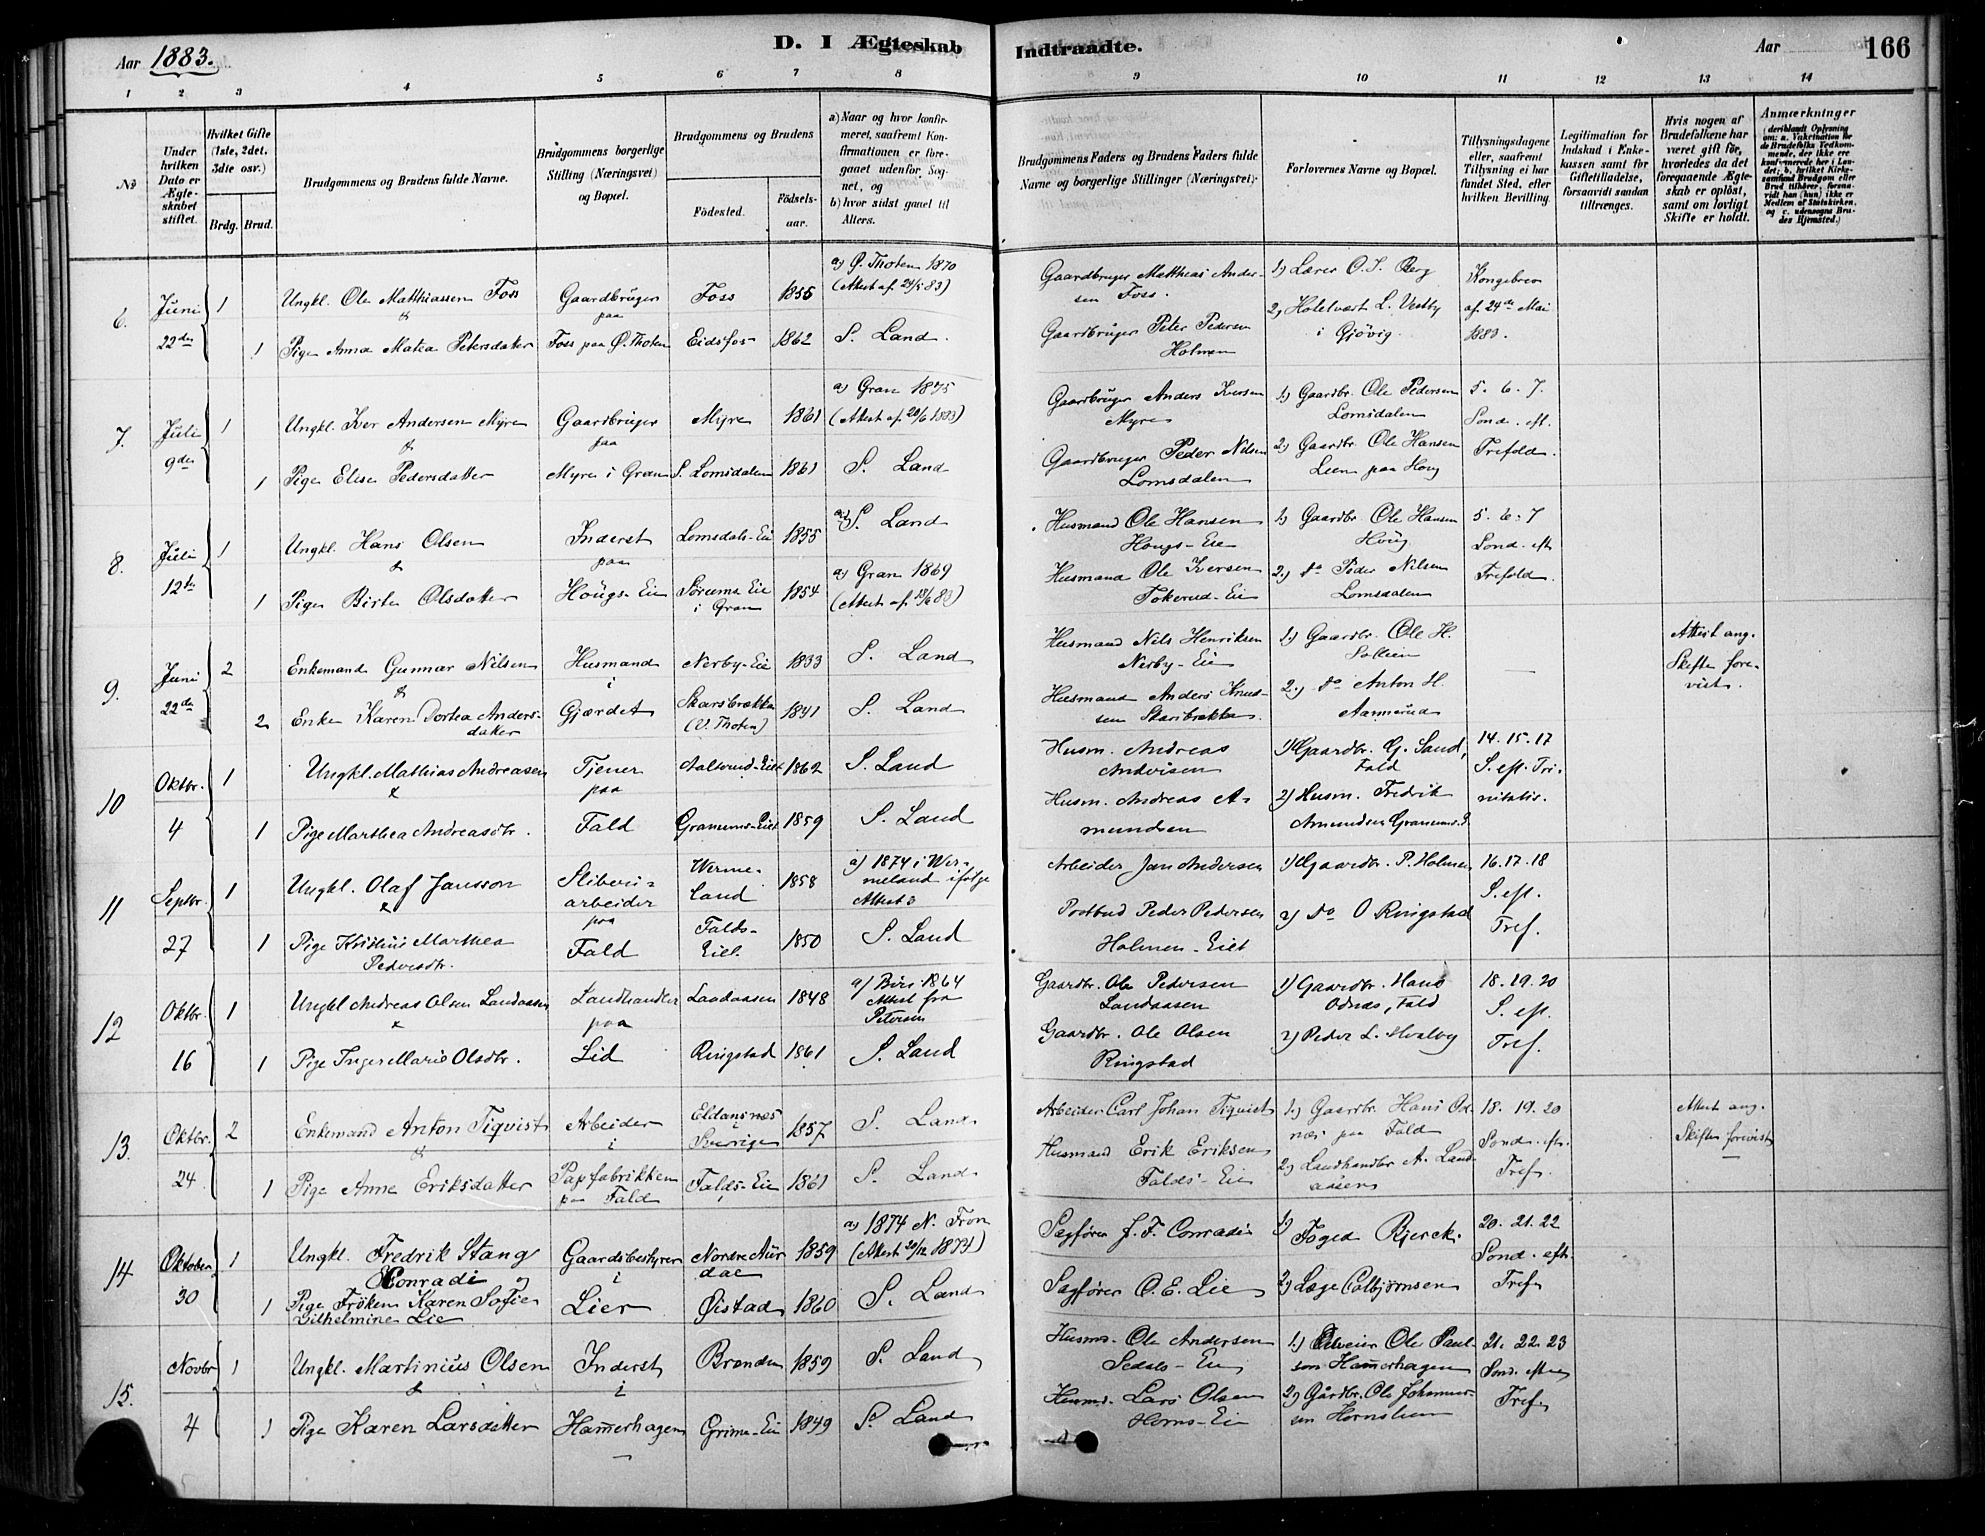 Aar 1883.
D. I Ægteskab Indtraadte.
Aar
166
1 2 3 4 5 6 7 8 9 10 11 12 13 14
No
Under hvilken Dato er Ægteskabet stiftet.
Hvilket Gifte (1ste, 2det, 3die osv.)
Brdg. Brud.
Brudgommens og Brudens fulde Navne.
Brudgommens borgerlige Stilling (Næringsvei) og Bopæl.
Brudgommens og Brudens
Födested.
Födsels-aar.
a) Naar og hvor konfirmeret, saafremt Konfirmationen er foregaaet udenfor, Sognet, og
b) hvor sidst gaaet til Alters.
Brudgommens Faders og Brudens Faders fulde Navne og borgerlige Stillinger (Næringsvei).
Forlovernes Navne og Bopæl.
Tillysningsdagene eller, saafremt Tillysning ei har fundet Sted, efter hvilken Bevilling.
Legitimation for Indskud i Enkekassen samt for Giftetilladelse, forsaavidt saadan tiltrænges.
Hvis nogen af Brudefolkene har været gift för, hvorledes da det foregaaende Ægteskab er oplöst, samt om lovligt Skifte er holdt.
Anmærkninger
6. Juni 22de
1 Ungkl. Ole Matthiassen Foss &
Gaardbruger paa
Foss 1855
a) Ø. Thoten 1870
(Attest af 24/5 83)
Gaardbruger Matthias Andersen Foss.
1) Lærer O. S. Berg
Kongebrev af 24de Mai 1883.
1 Pige Anna Matea Petersdatter
Foss paa Ø. Thoten
Eidsfos 1862
S. Land.
Gaardbruger Peter Pedersen Holmen
2, Hotelvært L. Vestby i Gjövig.
7. Juli 9de
1 Ungkl. Iver Andersen Myre &
Gaardbruger paa
Myre 1861
a) Gran 1875
(Attest af 20/6 1883)
Gaardbruger Anders Iversen Myre
1) Gaardbr. Ole Pedersen Lomsdalen
5. 6. 7. Sond. eft. Trefold.
1 Pige Elise Pedersdatter
Myre i Gran
S. Lomsdalen 1861
S. Land
Gaardbruger Peder Nilsen Lomsdalen
2.) Gaardbr. Ole Hansen Leen paa Houg
8. Juli 12te
1 Ungkl. Hans Olsen &
Inderst paa
Lomsdals-Eie 1855
S. Land
Husmand Ole Hansen Hougs-Eie
1) Gaardbr. Ole Hansen Houg
5. 6. 7 Sond. eft Trefold.
1 Pige Birte Olsdatter
Hougs-Eie
Sörums Eie i Gran 1854
a) Gran 1869
(Attest af 13/6 83)
Husmand Ole Iversen Tokerud-Eie
2.) Do Peder Nilsen Lomsdalen
9. Juni 22de
2 Enkemand Gunnar Nilsen &
Husmand i
Nerby-Eie 1833
S. Land
Husmand Nils Henriksen Nerby-Eie
1.) Gaardbr. Ole H. Sollien
Attest ang. Skifte forevist.
2 Enke Karen Dortea Andersdatter
Gjærdet
Skarsbrækka (V. Thoten) 1841
S. Land
Husmand Anders Knudsen Skarsbrækka.
2.) Do Anton H. Aannerud
10 Oktbr. 4
1 Ungkl. Mathias Andreasen &
Tjener paa
Aalsrud-Eiet 1862
S. Land
Husm. Andreas
1) Gaardbr. G. Sand, Fald
14. 15. 17 S. eft. Trinitatis.
1 Pige Marthea Andreasdtr.
Fald
Granums-Eiet 1859
S. Land
Husm. Andreas Amundsen
2) Husm. Fredrik Amundsen
11 Septbr. 27
1 Ungkl. Olaf Jansson &
Sliberiarbeider paa
Wermeland 1858
a) 1874 i Wermeland ifølge Attest
Arbeider Jan Andersen
1) Gaardbr. P. Holmen
16. 17. 18 S. eft. Tref.
1 Pige Kristine Marthea Pedersdtr.
Fald
Falds-Eiet 1850
S. Land
Postbud Peder Pedersen Holmen-Eiet
2) Do O Ringstad
12 Oktbr. 16
1 Ungkl Andreas Olsen Landaasen &
Landhandler paa
Landaasen 1848
a) Biri 1864 Attest fra Petersen
Gaardbr. Ole Pedersen Landaasen
1) Gaardbr. Hans Odnæs, Fald
18. 19. 20 S. eft. Tref.
1 Pige Inger Marie Olsdtr.
Lid
Ringstad 1861
S. Land
Gaardbr. Ole Olsen Ringstad
2) Peder L. Hvalby
13. Oktbr. 24
2 Enkemand Anton Tiqvist &
Arbeider i
Sverige 1857
S. Land
Arbeider Carl Johan Tiqvist
1.) Gaardbr. Hans Odnæs paa Fald
18. 19. 20 Sond. eft. Tref.
Attest ang. Skifte forevist
1 Pige Anne Eriksdatter
Papfabrikken paa Fald
Falds-Eie 1861
S. Land
Husmand Erik Eriksen Falds-Eie
2) Landhandler A. Landaasen
14 Oktober 30
1 Ungkl. Fredrik Stang Conradi og
Gaardsbestyrer i
Nordre Aurdal 1859
a) 1874 N. Fron
(Attest 20/12 1874)
Sagfører J. F. Conradi
1) Foged Bjerck.
20. 21. 22 Sond. eft. Tref
1 Pige Frøken Karen Sofie Vilhelmine Lie
Lier
Øistad 1860
S. Land
Sagfører O. E. Lie
2) Læge Colbjørnsen
15. Novbr 4
1 Ungkl. Martinius Olsen &
Inderst i
Brenden 1859
S. Land
Husmd. Ole Andersen Sedals-Eie
1.) Ole Paulsen Hammerhagen
21. 22. 23 Sond. efter Tref
1 Pige Karen Larsdatter
Hammerhagen
Grime-Eie 1849
S. Land
Husmd. Lars Olsen Horns-Eie
2) Gårdbr. Ole Johannessen Hornslien